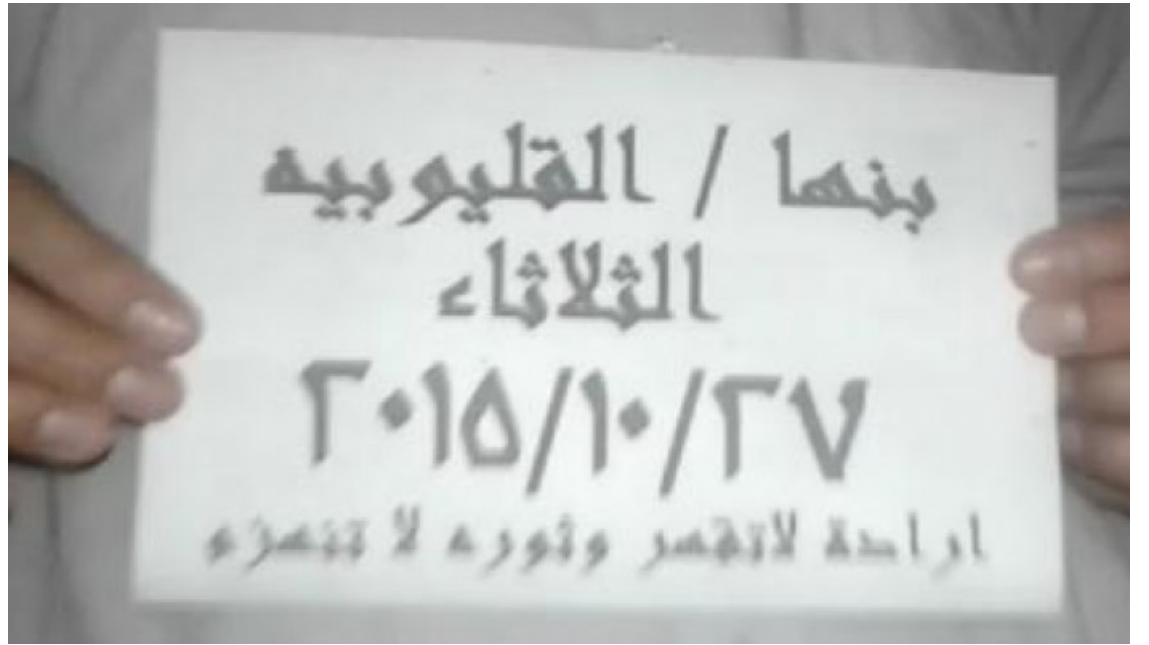 بنها / القليوبيه
الثلاثاء
٢٠١٥/١٠/٢٧
ارادة لاتقهر وثوره لا تنهزم